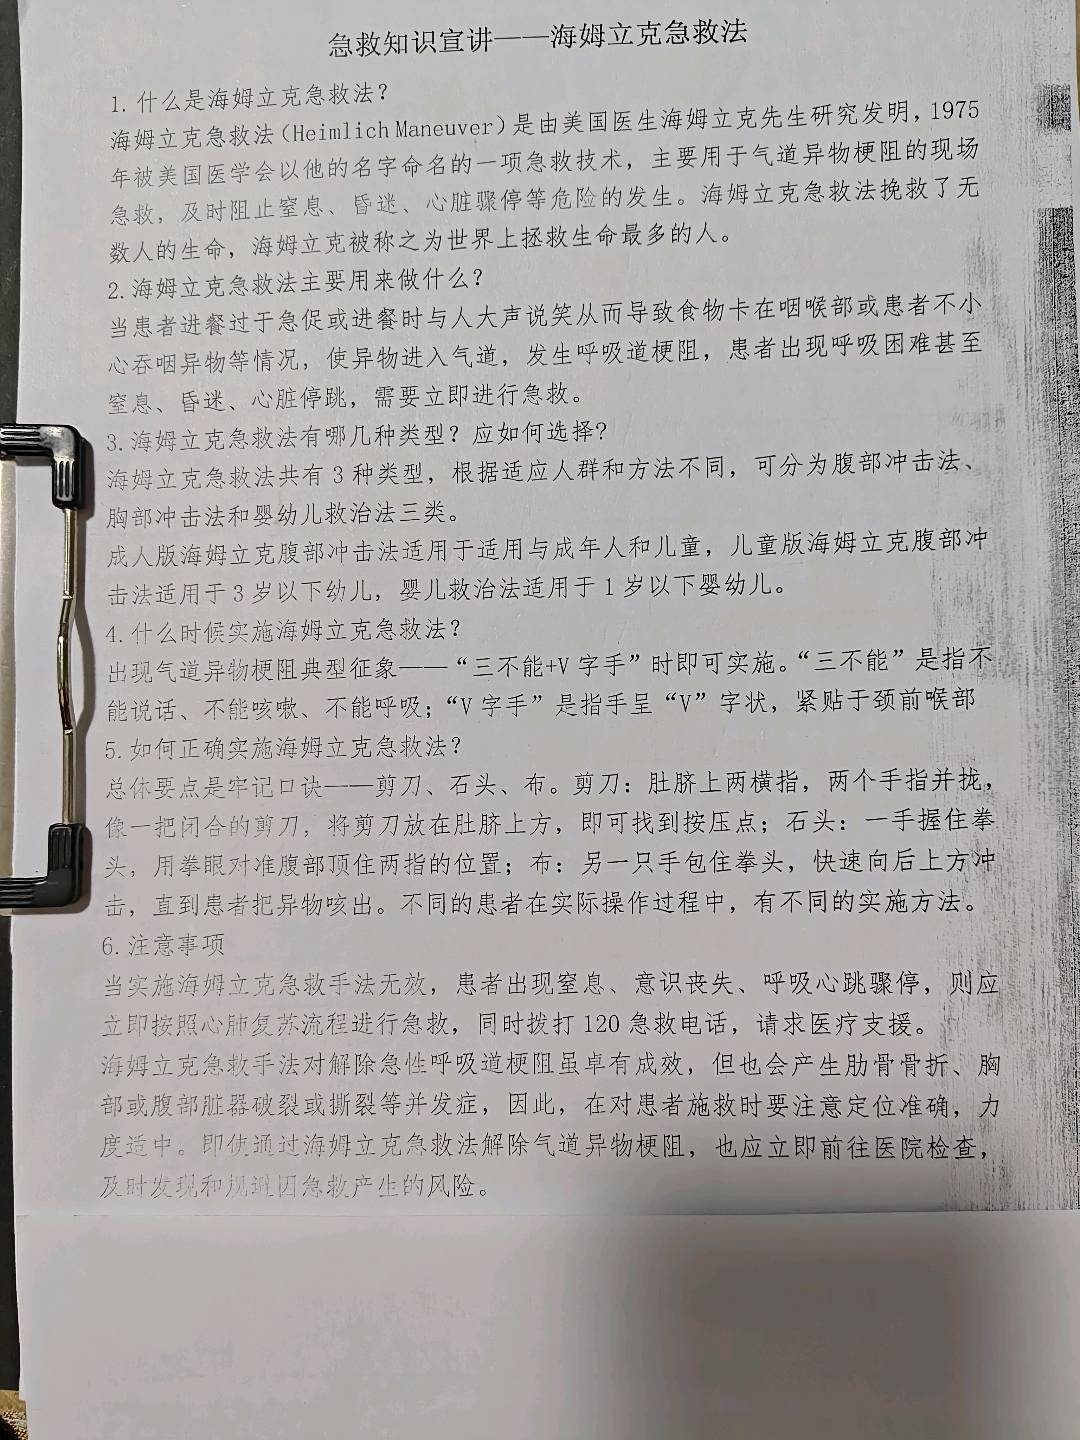 急救知识宣讲——海姆立克急救法
1.什么是海姆立克急救法？
海姆立克急救法（Heimlich Maneuver）是由美国医生海姆立克先生研究发明，1975
年被美国医学会以他的名字命名的一项急救技术，主要用于气道异物梗阻的现场
急救，及时阻止窒息、昏迷、心脏骤停等危险的发生。海姆立克急救法挽救了无
数人的生命，海姆立克被称之为世界上拯救生命最多的人。
2.海姆立克急救法主要用来做什么？
当患者进餐过于急促或进餐时与人大声说笑从而导致食物卡在咽喉部或患者不小
心吞咽异物等情况，使异物进入气道，发生呼吸道梗阻，患者出现呼吸困难甚至
窒息、昏迷、心脏停跳，需要立即进行急救。
3.海姆立克急救法有哪几种类型？应如何选择?
海姆立克急救法共有 3 种类型，根据适应人群和方法不同，可分为腹部冲击法、
胸部冲击法和婴幼儿救治法三类。
成人版海姆立克腹部冲击法适用于适用与成年人和儿童，儿童版海姆立克腹部冲
击法适用于 3 岁以下幼儿，婴儿救治法适用于 1 岁以下婴幼儿。
4.什么时候实施海姆立克急救法？
出现气道异物梗阻典型征象——“三不能+V 字手”时即可实施。“三不能”是指不
能说话、不能咳嗽、不能呼吸；“V 字手”是指手呈“V”字状，紧贴于颈前喉部
5.如何正确实施海姆立克急救法？
总体要点是牢记口诀——剪刀、石头、布。剪刀：肚脐上两横指，两个手指并拢，
像一把闭合的剪刀，将剪刀放在肚脐上方，即可找到按压点；石头：一手握住拳
头，用拳眼对准腹部顶住两指的位置；布：另一只手包住拳头，快速向后上方冲
击，直到患者把异物咳出。不同的患者在实际操作过程中，有不同的实施方法。
6.注意事项
当实施海姆立克急救手法无效，患者出现窒息、意识丧失、呼吸心跳骤停，则应
立即按照心肺复苏流程进行急救，同时拨打 120 急救电话，请求医疗支援。
海姆立克急救手法对解除急性呼吸道梗阻虽卓有成效，但也会产生肋骨骨折、胸
部或腹部脏器破裂或撕裂等并发症，因此，在对患者施救时要注意定位准确，力
度适中。即使通过海姆立克急救法解除气道异物梗阻，也应立即前往医院检查，
及时发现和规避因急救产生的风险。